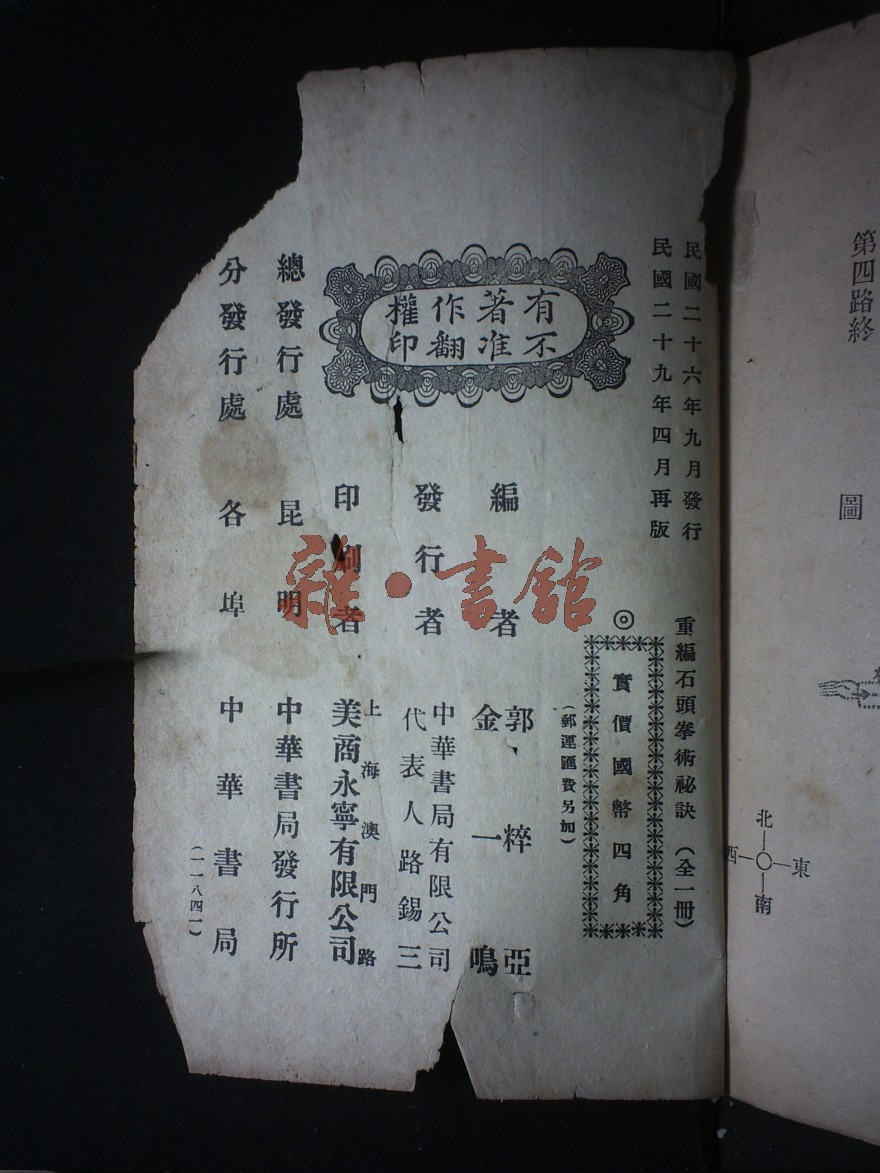 第四路終
圖
北
西 東
南
民國二十六年九月發行
民國二十九年四月再版
重編石頭拳術祕訣(全一冊)
◎
實價國幣四角
(郵運匯費另加)
有著作權
不准翻印
編者 郭粹亞
金一鳴
發行者 中華書局有限公司
代表人路錫三
印刷者 上海澳門路
美商永寧有限公司
總發行處 昆明 中華書局發行所
分發行處 各埠 中華書局
(一一八四一)
雜·書館